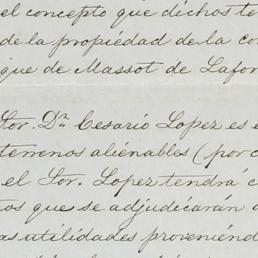 el concepto que dichos te
de la propiedad de la co
que de Massot de Lafor
Sor. Dn. Cesario Lopez es e
terrenos aliénables (por c
el Sor. Lopez tendrá c
os que se adjudicarán a
as utilidades proveniénd